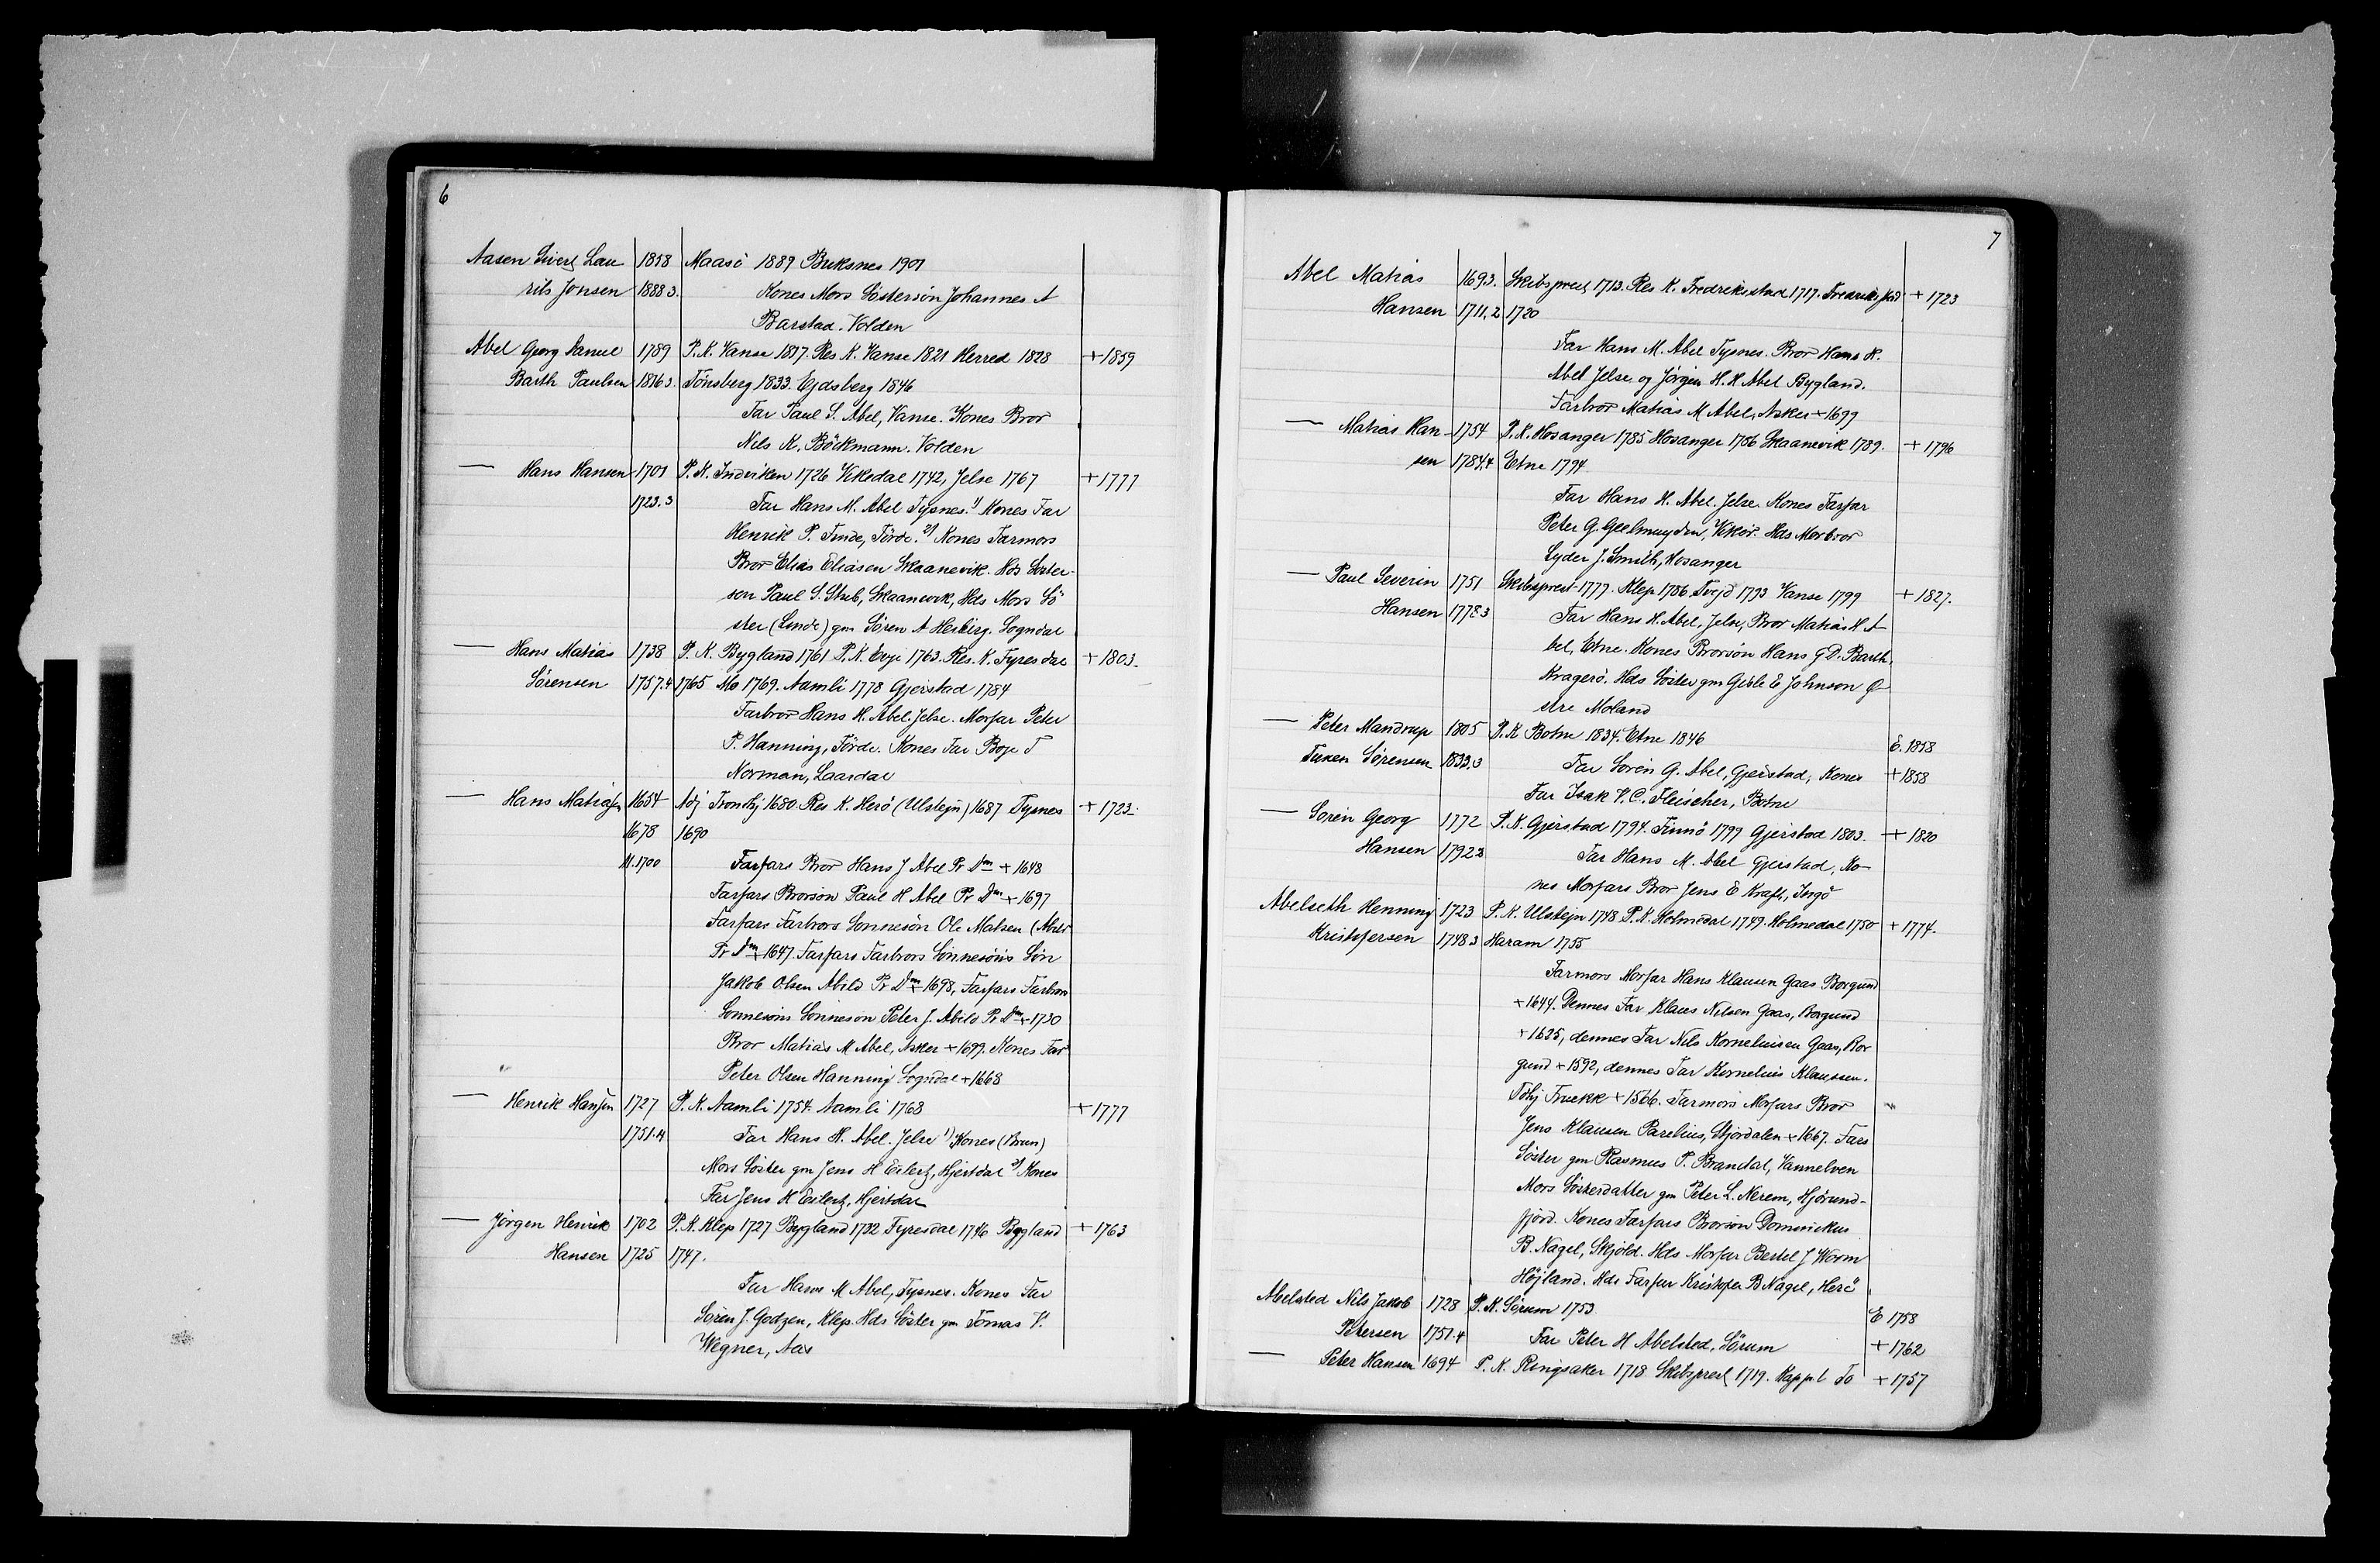 6
Aasen Sivert Lau 1858 Maasö 1889 Buksnes 1901
rits Jonsen 1888 3. Kones Mors Söstersön Johannes A
Barstad. Volden
Abel Georg Daniel 1789 P. K. Vanse 1817. Res K. Vanse 1821 Herred 1828 +1859
Barth Paulsen 1816 3. Tönsberg 1833. Ejdsberg 1846
Far Paul S. Abel, Vanse. Kones Bror
Nils K. Böckmann. Volden
— Hans Hansen 1701 P. K. Indviken 1726 Vikedal 1742, Jelse 1767 +1777
1723.3 Far Hans M. Abel Tysnes. 1) Kones Far
Henrik P. Finde, Förde. 2) Kones Farmors
Bror Elias Eliasen Skaanevik. Hds Söster-
sön Paul S. Stub, Skaanevik, Hds Mors Sö
ster (Linde) gm Sören A Heiberg. Sogndal
— Hans Matias 1738 P. K. Bygland 1761 P. K. Evje 1763. Res. K. Fyresdal +1803.
Sörensen 1757.4 1765 Mo 1769. Aamli 1778 Gjerstad 1784
Farbror Hans H. Abel. Jelse. Morfar Peter
P. Hanning, Förde. Kones Far Boje T
Norman, Laardal
— Hans Matiasen 1654 Adj Tronthj 1680. Res K. Herö (Ulstejn) 1687 Tysnes +1723.
1678 1690
M. 1700 Farfars Bror Hans J Abel Pr Dm +1648
Farfars Brorsön Paul H Abel Pr Dm +1697
Farfars Farbrors Sönnesön Ole Matsen (Abild
Pr Dm +1647. Farfars Farbrors Sönnesöns Sön
Jakob Olsen Abild Pr Dm +1698, Farfars Farbrors
Sönnesöns Sönnesön Peter J. Abild Pr Dm +1730
Bror Matias M Abel, Asker +1699. Kones Far
Peter Olsen Hanning Sogndal +1668
— Henrik Hansen 1727 P. K. Aamli 1754. Aamli 1768 +1777
1751.4 Far Hans H. Abel. Jelse 1) Kones (Brun)
Mors Söster gm Jens H Eilertz, Hjertdal 2) Kones
Far Jens H Eilertz, Hjertdal
— Jörgen Henrik 1702 P. K. Klep 1727 Bygland 1732 Fyresdal 1746 Bygland +1763
Hansen 1725 1747.
Far Hans M Abel, Tysnes. Kones Far
Sören J. Godzen, Klep. Hds Söster gm Tomas V.
Wegner, Aas
7
Abel Matias 1693. Skibsprest 1713. Res K. Fredriksstad 1717. +1723
Hansen 1711.2 1720
Far Hans M. Abel Tysnes. Bror Hans H.
Abel Jelse og Jörgen H. H Abel Bygland.
Farbror Matias M Abel, Asker +1699
— Matias Han- 1754 P. K. Hosanger 1785 Hosanger 1786 Skaanevik 1789. +1796
sen 1784.4 Etne 1794
Far Hans H. Abel. Jelse. Kones Farfar
Peter G. Geelmuyden, Vikör. Hds Morbror
Lyder J. Smith, Hosanger
— Paul Severin 1751 Skibsprest 1779. Klep 1786. Tvejd 1793 Vanse 1799 +1827.
Hansen 1778 3 Far Hans H. Abel, Jelse, Bror Matias H A
bel, Etne. Kones Brorsön Hans G D. Barth,
Kragerö. Hds Söster gm Geble E Johnson Ö
stre Moland
— Peter Mandrup 1805 P. K Botne 1834. Etne 1846 E. 1858
Tuxen Sörensen 1833.3 Far Sören G. Abel, Gjerstad, Kones +1858
Far Isak V. C. Fleischer, Botne
— Sören Georg 1772 P. K. Gjerstad 1794. Finnö 1799 Gjerstad 1803. +1820
Hansen 1792 3 Far Hans M. Abel Gjerstad, Ko-
nes Morfars Bror Jens E Kraft, Ingö
Abelseth Henning 1723 P. K. Ulstejn 1748 P. K. Holmedal 1749. Holmedal 1750 +1774.
Kristofersen 1748 3 Haram 1755
Farmors Morfar Hans Klausen Gaas Borgund
+1644. Dennes Far Klaus Nilsen Gaas, Borgund
+1635, dennes Far Nils Korneliusen Gaas, Bor
gund +1592, dennes Far Kornelius Klaussen.
Tdhj Fruekk +1566. Farmors Morfars Bror
Jens Klausen Parelius, Stjördalen +1667. Fars
Söster gm Rasmus P. Brandal, Vannelven
Mors Sösterdatter gm Peter L. Nerem, Hjörund-
fjord. Kones Farfars Brorsön Dominikus
B. Nagel, Skjöld. Hds Morfar Bertel J Worm
Höjland. Hds Farfar Kristofer B Nagel, Herö
Abelsted Nils Jakob 1728 P. K. Sörum 1753 E 1758
Petersen 1751.4 Far Peter H Abelsted, Sörum +1762
— Peter Hansen 1694 P. K. Ringsaker 1718 Skibsprest 1719. Kapp. l To +1757